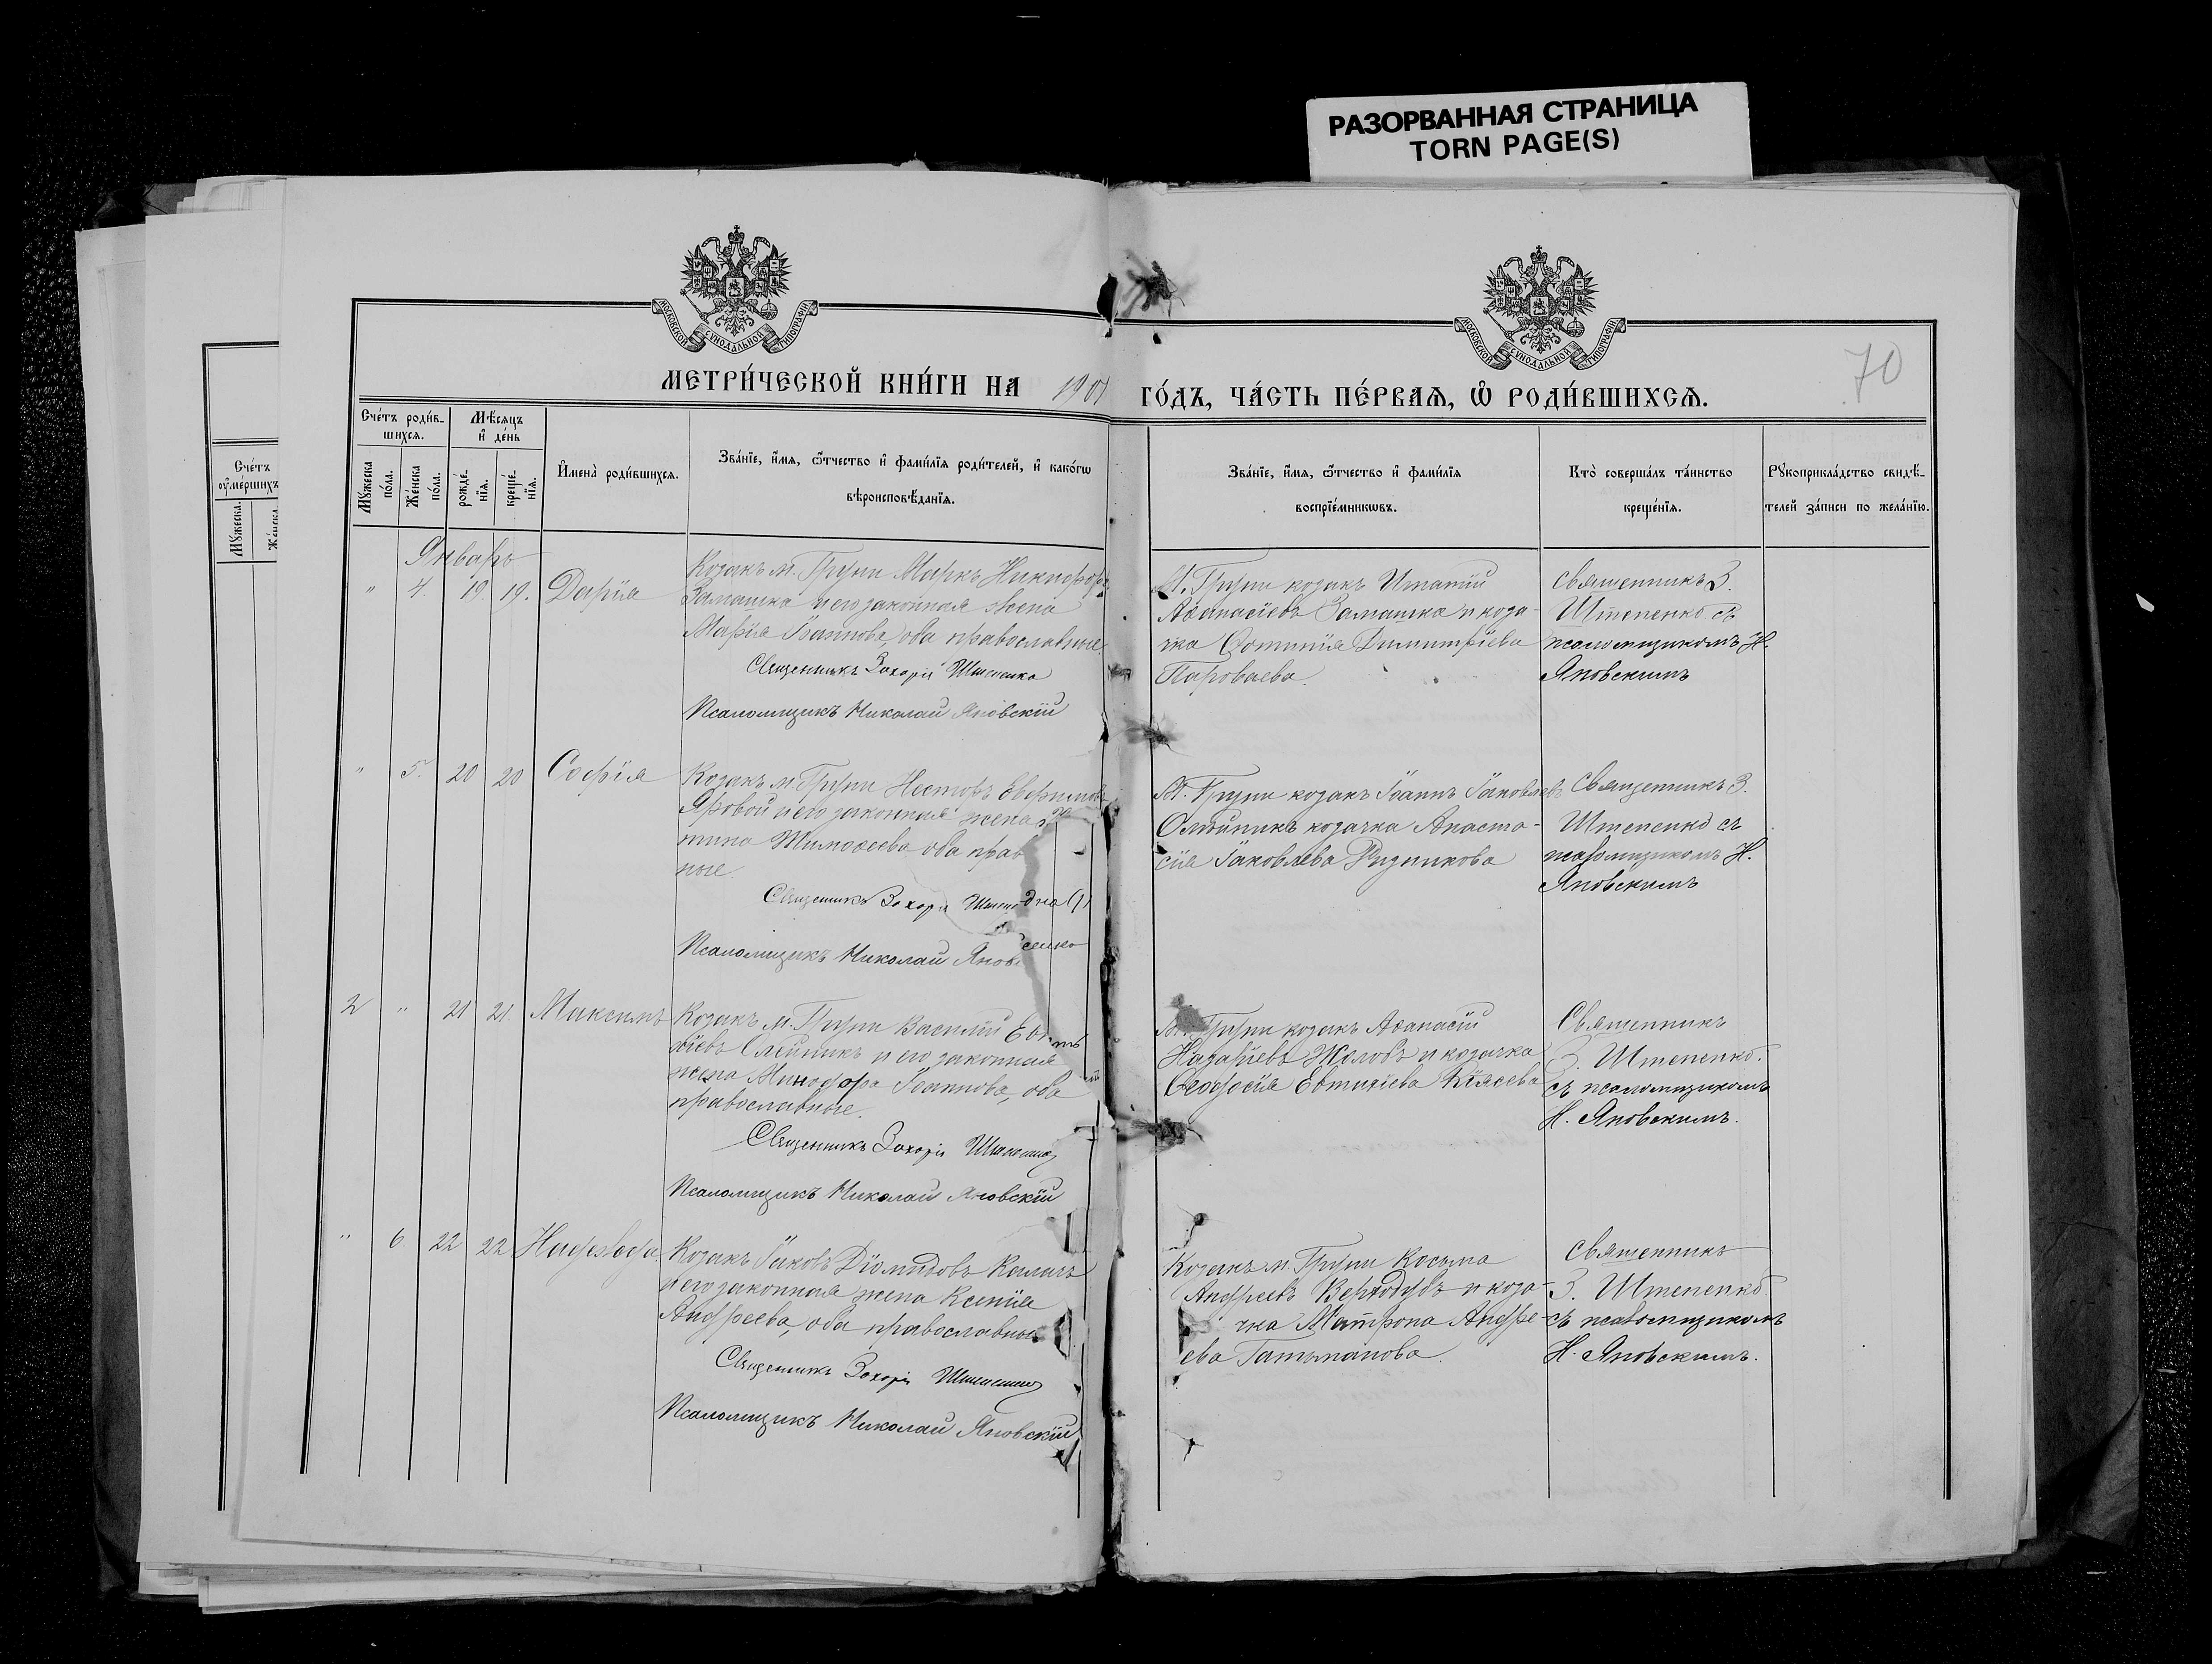 РАЗОРВАННАЯ СТРАНИЦА
TORN PAGE(S)
МОСКОВСКОЙ СѴНОДАЛЬНОЙ ТИПОГРАФІИ
МОСКОВСКОЙ СѴНОДАЛЬНОЙ ТИПОГРАФІИ
70
МЕТРИ́ЧЕСКОЙ КНИ́ГИ НА 1901 ГО́ДЪ, ЧА́СТЬ ПЕ́РВАѦ, Ѡ РОДИ́ВШИХСѦ.
Сче́тъ оумершихъ
Мꙋжеска.
Же́нска.
Сче́тъ роди́вшихсѧ.
Мꙋжеска по́ла.
Же́нска по́ла.
Мѣ́сѧцъ и де́нь
рожде́нїѧ.
креще́нїѧ.
И҆мена̀ роди́вшихсѧ.
Зва́нїе, и҆́мѧ, ѻ҆́тчество и҆ фами́лїѧ роди́телей, и҆ како́гѡ
вѣроисповѣ́данїѧ.
Зва́нїе, и҆́мѧ, ѻ҆́тчество и҆ фами́лїѧ
воспрїе́мникѡвъ.
Кто̀ соверша́лъ та́инство
креще́нїѧ.
Рꙋкоприкла́дство свидѣ́-
телей за́писи по жела́нїю.
Январь
" 4. 19. 19. Дарія
Козакъ м. Груни Маркъ Никифоро
Замашка и его законная жена
Марія Іоаннова, оба православные.
Священникъ Захарій Штепенко
Псаломщикъ Николай Яновскій
М. Груни козакъ Ипатій
Аѳанасіевъ Замашка и коза-
чка Фотинія Димитріева
Пароваева.
Священникъ З.
Штепенко съ
псаломщикомъ Н.
Яновскимъ
" 5. 20 20 Софія
Козакъ м. Груни Несторъ Евфимов
Яровой и его законная жена
тина Тимоѳеева оба прав
ные.
Священникъ Захарій
Псаломщикъ Николай Янов
М. Груни козакъ Іоаннъ Іаковлевъ
Олейникъ козачка Анаста-
сія Іаковлева Рудникова
Священникъ З.
Штепенко съ
псаломщикомъ Н.
Яновскимъ
2 " 21 21. Максимъ
Козакъ м. Груни Василій
хіевъ Олейникъ и его законная
жена Минодора Іоаннова, оба
православные.
Священникъ Захарій Штепенко
Псаломщикъ Николай Яновскій
М. Груни козакъ Аѳанасій
Назаріевъ и козачка
Ѳеодосія Евтихіева
Священникъ
З. Штепенко.
съ псаломщикомъ
Н. Яновскимъ.
" 6. 22 22 Надежда
Козакъ Іаковъ Діомидовъ
и его законная жена Ксенія
Андреева, оба православные
Священникъ Захарій Штепенко
Псаломщикъ Николай Яновскій
Козакъ м. Груни Косьма
Андреевъ Верходубъ и коза-
чка Матрона Андре-
ева Гатьманова.
Священникъ
З. Штепенко.
съ псаломщикомъ
Н. Яновскимъ.